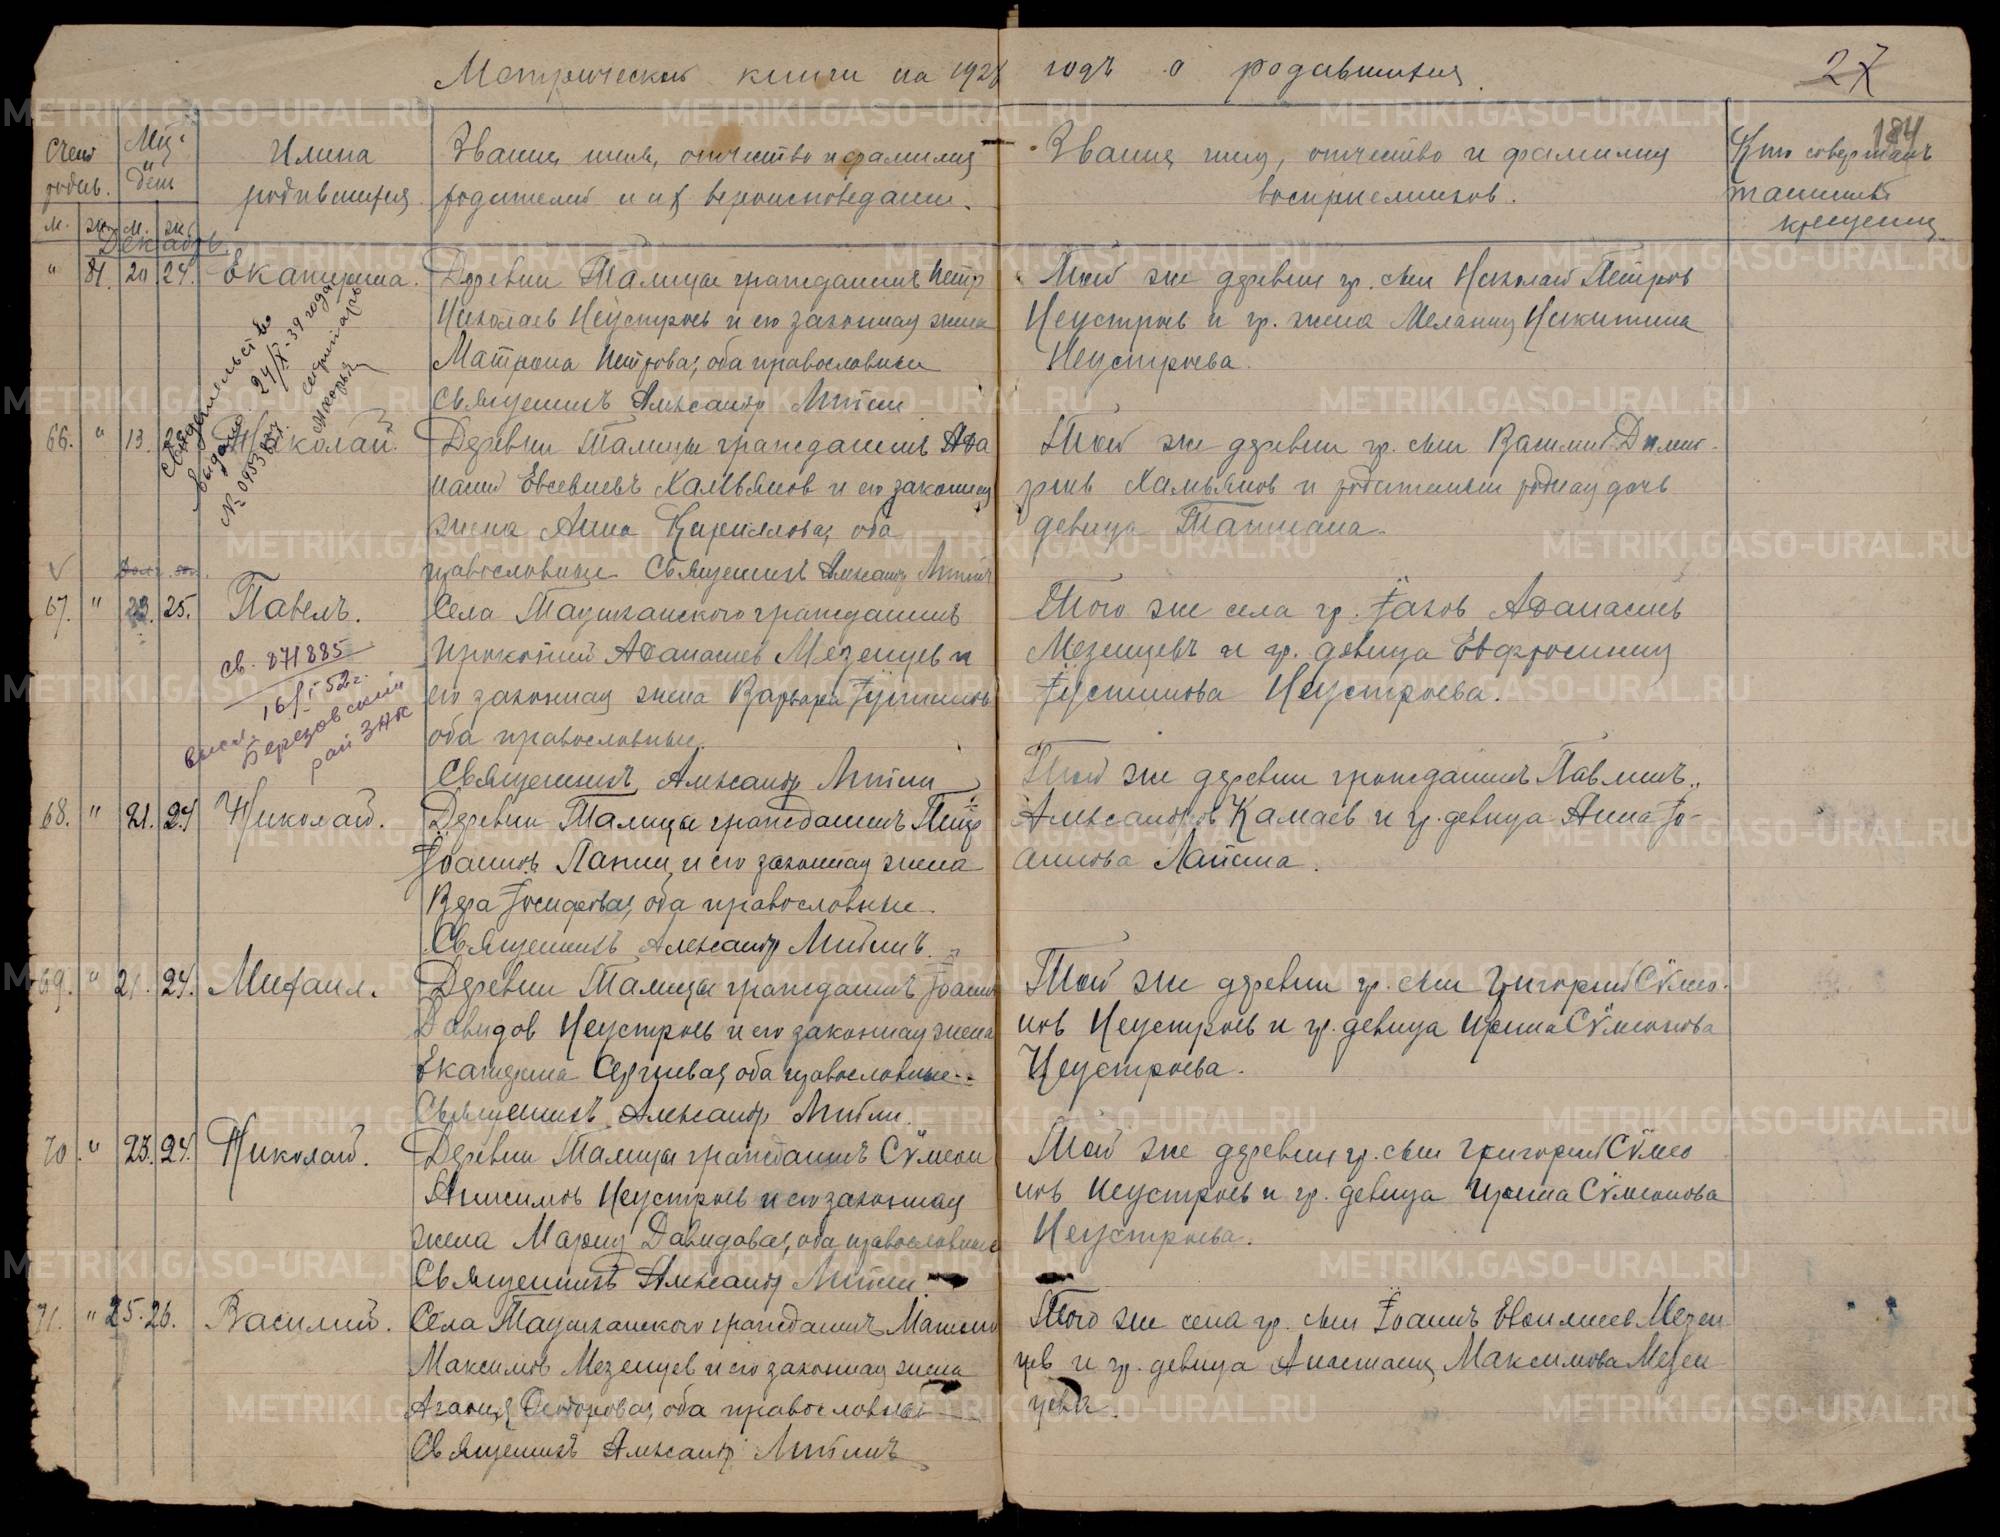 Метрической книги на 192 годъ о родившихся
27
184
Счетъ родив.
Мц. и день
Имена родившихся
Званiе, имя, отчество и фамилия
родителей и их вероисповедание.
Званiя имя, отчество и фамилия
восприемников.
Кто совершалъ
таинство
крещения
м. ж. м. ж.
Декабрь
" 81. 20. 24. Екатерина.
Деревни Талицы гражданинъ Петр
Николаев Неустроев и его законная жена
Матрона Петрова, оба православные
Священникъ Александр
Той же деревни гр. сын Николай Петров
Неустроев и гр. жена Мелания Никитина
Неустроева.
Свидетельство
выдано 24/X-39 года
№
66. " 13. Николай.
Деревни Талицы гражданинъ Афа
насий Евсевиевъ Хамьянов и его законная
жена Анна Кириллова, оба
православные Священникъ Александр
Той же деревни гр. сын Василий Димит-
риев Хамьянов и родителей родная дочь
девица Татиана.
67. " 23. 25. Павелъ.
Села Таушканского гражданинъ
Прокопий Афанасиев Мезенцев и
его законная жена Варвара Iустинова
оба православные.
Священникъ Александр
Того же села гр. Iаков Афанасиев
Мезенцевъ и гр. девица Евфросиния
Iустинова Неустроева.
св. 871885
16/I 52г.
Березовский
рай ЗАГС
68. " 21. 24. Николай.
Деревни Талицы гражданинъ Петр
Iоаннов Лапин и его законная жена
Вера Iосифова, оба православные.
Священникъ Александр
Той же деревни гражданинъ Павлинъ
Александров Камаев и гр. девица Анна Iо-
аннова Лапина.
69. " 21. 24. Михаил.
Деревни Талицы гражданинъ Iоанн
Давидов Неустроев и его законная жена
Екатерина Сергиева, оба православные.
Священникъ Александр
Той же деревни гр. сын Григорий Сѵмео-
нов Неустроев и гр. девица Ирина Сѵмеонова
Неустроева.
70. " 23. 24. Николай.
Деревни Талицы гражданинъ Сѵмеон
Анисимов Неустроев и его законная
жена Мария Давидова, оба православные
Священникъ Александр
Той же деревни гр. сын Григорий Сѵмео
нов Неустроев и гр. девица Ирина Сѵмеонова
Неустроева.
71. " 25. 26. Василий.
Села Таушканского гражданинъ
Максимов Мезенцев и его законная жена
Агафия Феодорова, оба православные
Священникъ Александр
Того же села гр. сын Iоаннъ Мезен
цев и гр. девица Анастасия Максимова Мезен
цева.
METRIKI.GASO-URAL.RU